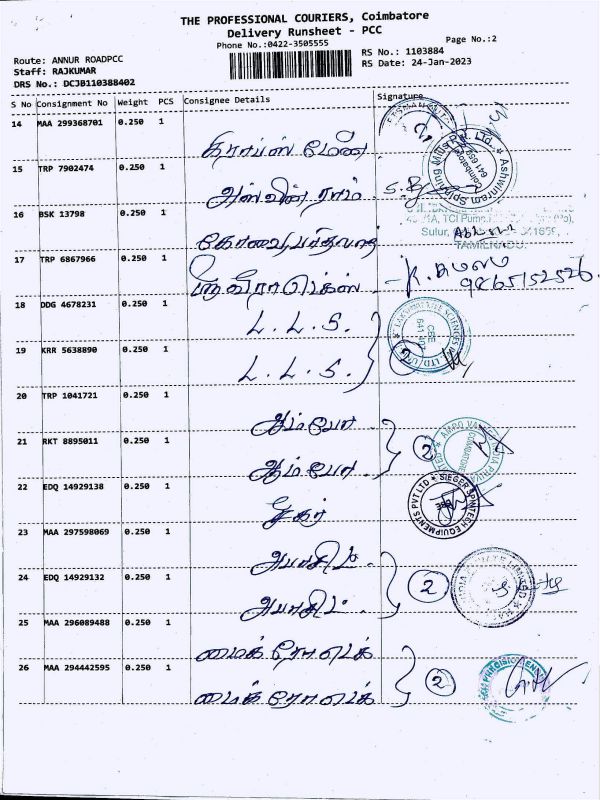 THE PROFESSIONAL COURIERS, Coimbatore
Delivery Runsheet - PCC
Phone No.:0422-3505555
Page No.:2
Route: ANNUR ROADPCC
Staff: RAJKUMAR
DRS No.: DCJB110388402
RS No.: 1103884
RS Date: 24-Jan-2023
S No Consignment No Weight PCS Consignee Details Signature
14 MAA 299368701 0.250 1
15 TRP 7902474 0.250 1
அஸ்வின் ராம்
16 BSK 13798 0.250 1
17 TRP 6867966 0.250 1
9865152526
18 DDG 4678231 0.250 1
L. L. S.
19 KRR 5638890 0.250 1
L. L. S. 2
20 TRP 1041721 0.250 1
ஆம்போ
21 RKT 8895011 0.250 1 2
ஆம்போ
22 EDQ 14929138 0.250 1
SIEGER SPINTECH EQUIPMENTS PVT LTD
23 MAA 297598069 0.250 1
24 EDQ 14929132 0.250 1 2
25 MAA 296089488 0.250 1
மைக்ரோடெக்
26 MAA 294442595 0.250 1 2
மைக்ரோடெக்
Ashwinram Spinning Mills Pvt. Ltd.
Coimbatore
641 659
TAMILNADU